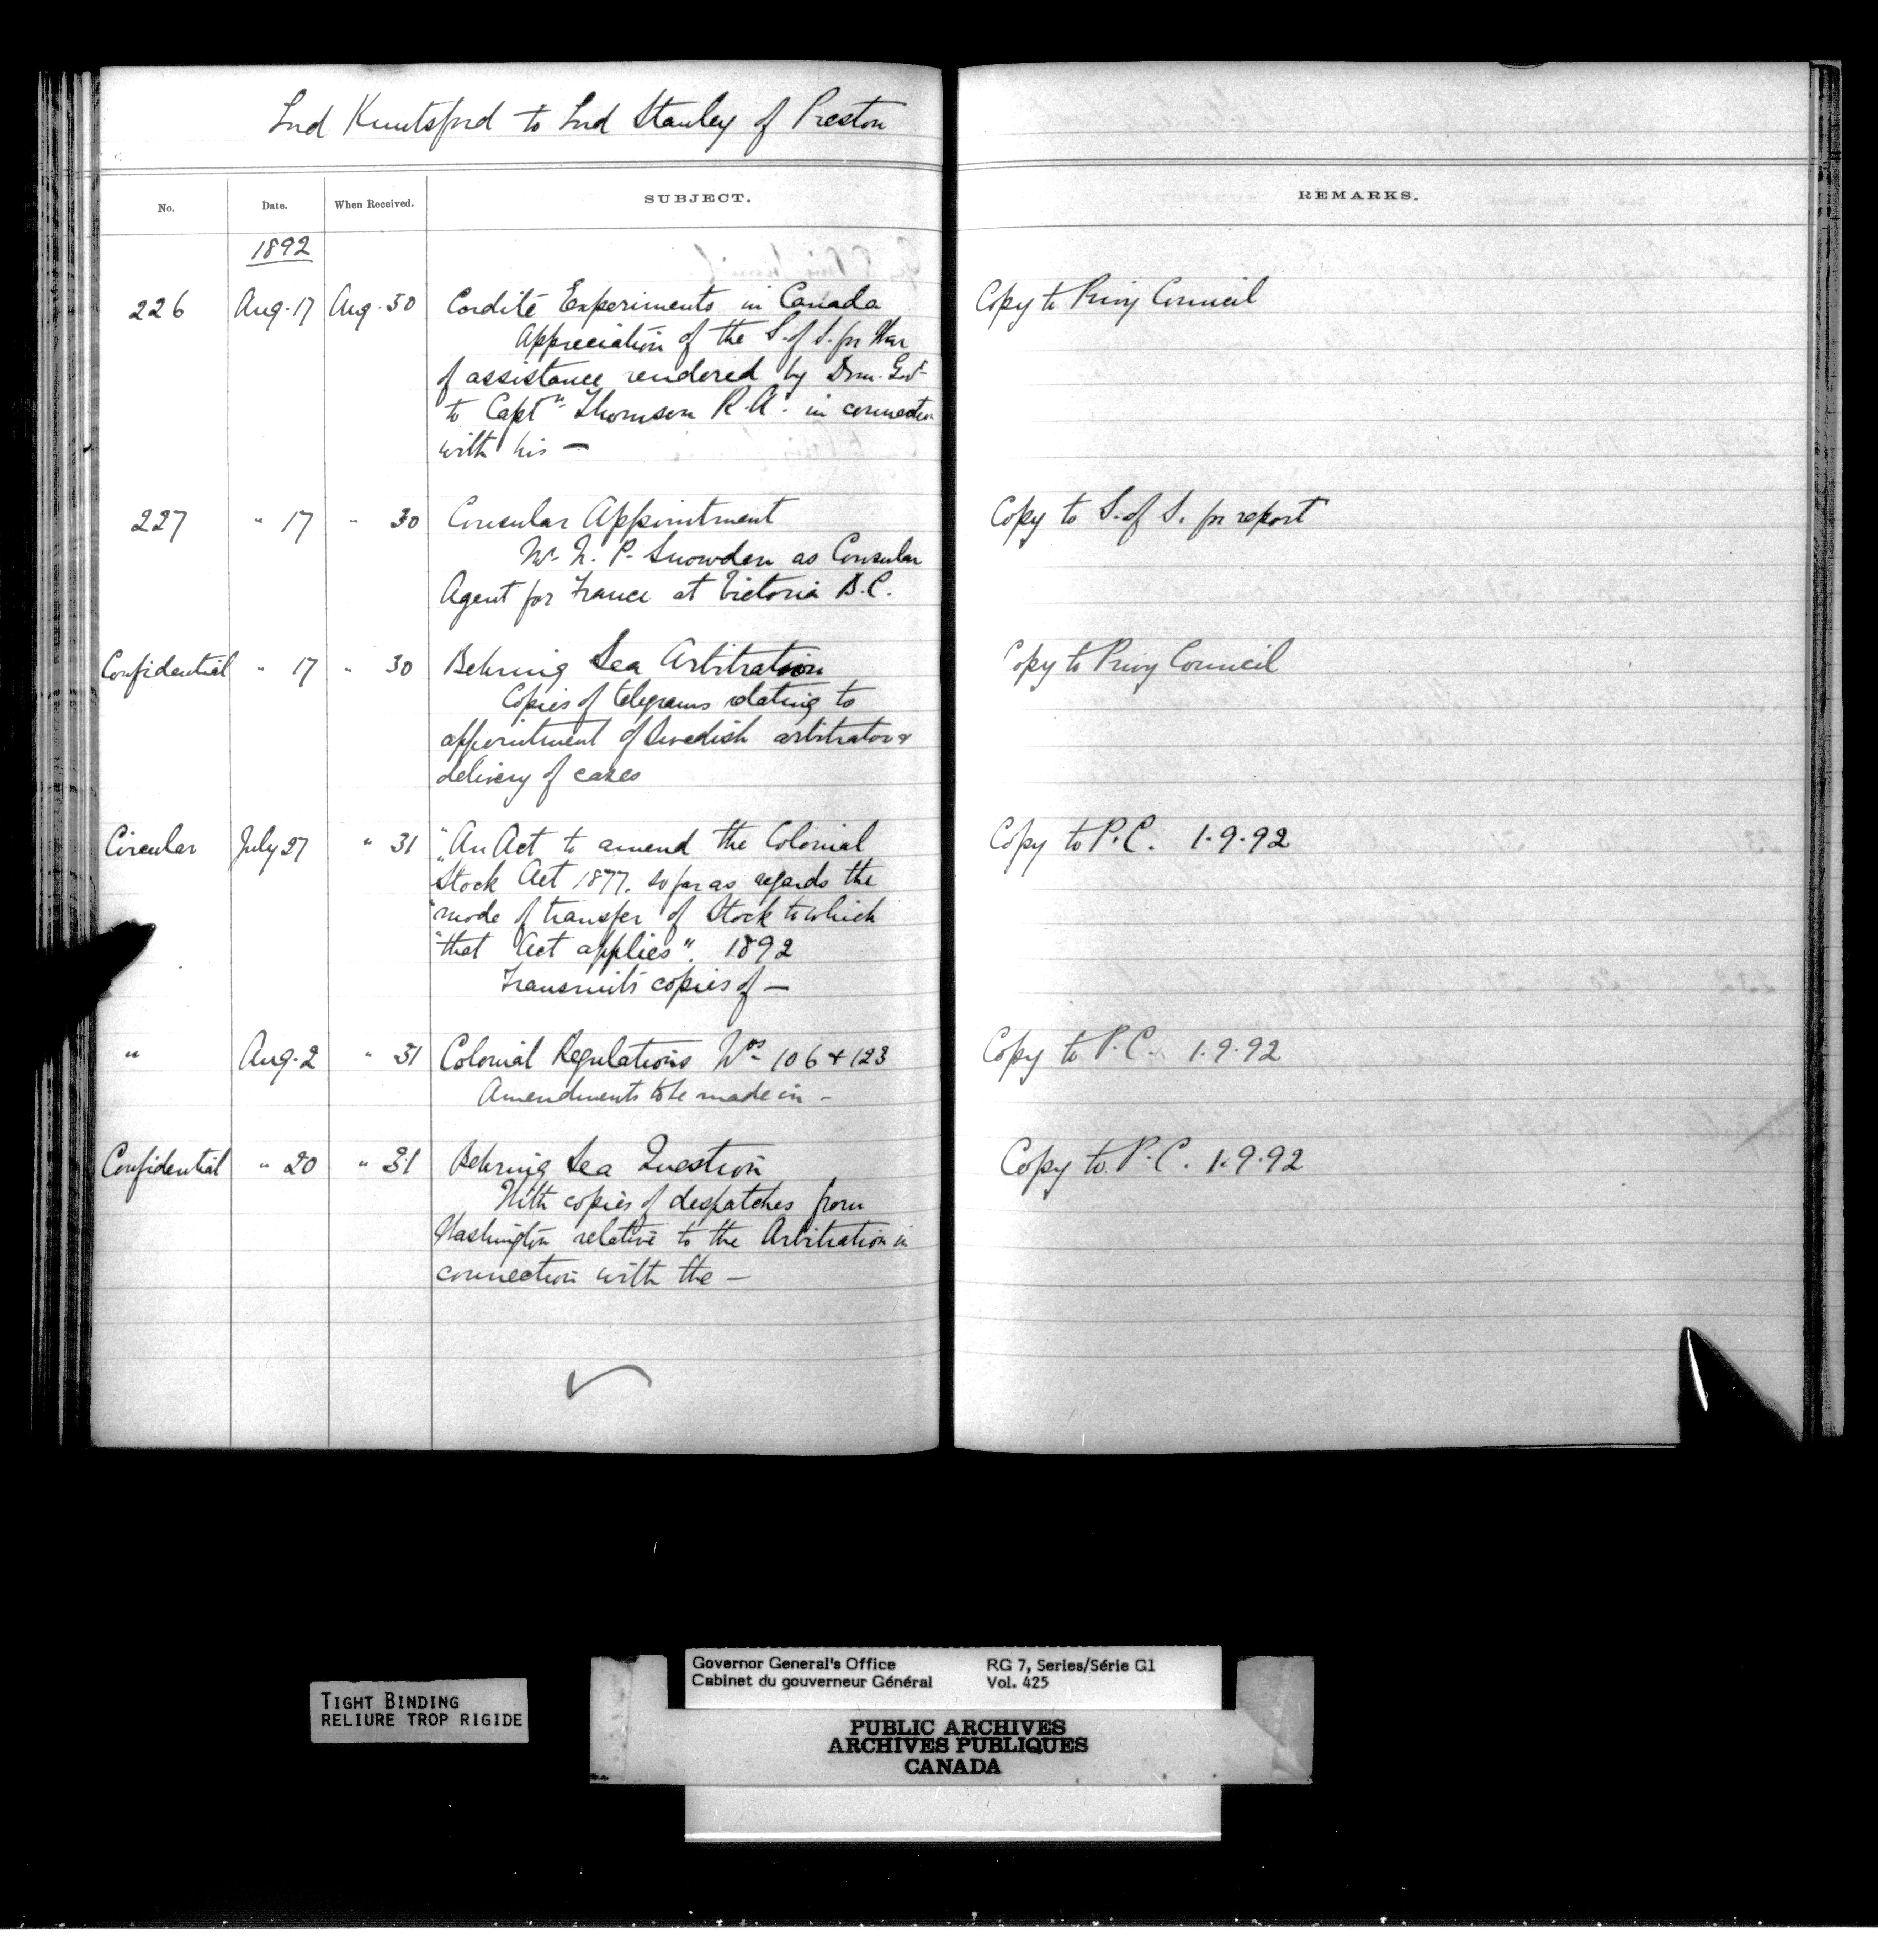 Lord Knutsford to Lord Stanley of Preston
No. Date. When Received. SUBJECT. REMARKS.
1892
226 Aug. 17 Aug. 30 Cordite Experiments in Canada Copy to Privy Council
Appreciation of the S. of S. for War
of assistance rendered by Dom. Govt
to Captn Thomson R.A. in connection
with his —
227 " 17 " 30 Consular Appointment Copy to S. of S. for report
Mr. N. P. Snowden as Consular
Agent for France at Victoria B.C.
Confidential " 17 " 30 Behring Sea Arbitration Copy to Privy Council
Copies of telegrams relating to
appointment of Swedish arbitrator &
delivery of cases
Circular July 27 " 31 "An Act to amend the Colonial Copy to P.C. 1.9.92
"Stock Act 1877. so far as regards the
"mode of transfer of Stock to which
"that Act applies". 1892
Transmits copies of —
" Aug. 2 " 31 Colonial Regulations Nos 106 & 123 Copy to P.C. 1.9.92
Amendments to be made in —
Confidential " 20 " 31 Behring Sea Question Copy to P.C. 1.9.92
With copies of despatches from
Washington relative to the Arbitration in
connection with the —
TIGHT BINDING
RELIURE TROP RIGIDE
Governor General's Office RG 7, Series/Série G1
Cabinet du gouverneur Général Vol. 425
PUBLIC ARCHIVES
ARCHIVES PUBLIQUES
CANADA